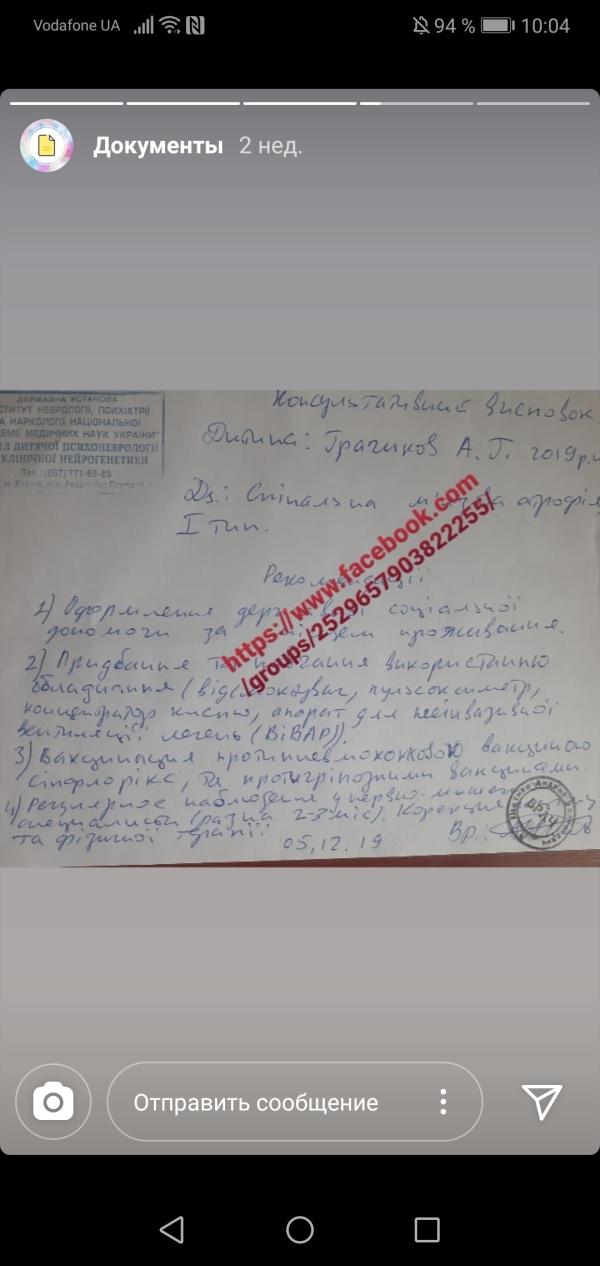 Vodafone UA 94 % 10:04
Документы 2 нед.
ДЕРЖАВНА УСТАНОВА
СТИТУТ НЕВРОЛОГІЇ, ПСИХІАТРІЇ
А НАРКОЛОГІЇ НАЦІОНАЛЬНОЇ
ДЕМІЇ МЕДИЧНИХ НАУК УКРАЇНИ"
ІЛ ДИТЯЧОЇ ПСИХОНЕВРОЛОГІЇ
КЛІНІЧНОЇ НЕЙРОГЕНЕТИКИ
Тел.: (057)
м. Харків, вул.
Консультативний висновок
Дитина: Грачиков А. Г. 2019р.н
Дз.: Спінальна м'язова атрофія
I тип.
Рекомендації
1) Оформлення державної соціальної
допомоги за місцем проживання.
2) Придбання та навчання використанню
обладнання (відсмоктувач, пульсоксиметр,
концентратор кисню, апарат для неінвазивної
вентиляції легень (BiBAP)).
3) Вакцинация протипневмококовою вакциною
сінфлорікс, та протигрипозними вакцинами.
4) Регулярное наблюдение у
специалисти (раз на 2-3 міс). Корекция
та фізичної терапії
05,12.19
Вр.:
https://www.facebook.com
/groups/2529657903822255/
Отправить сообщение